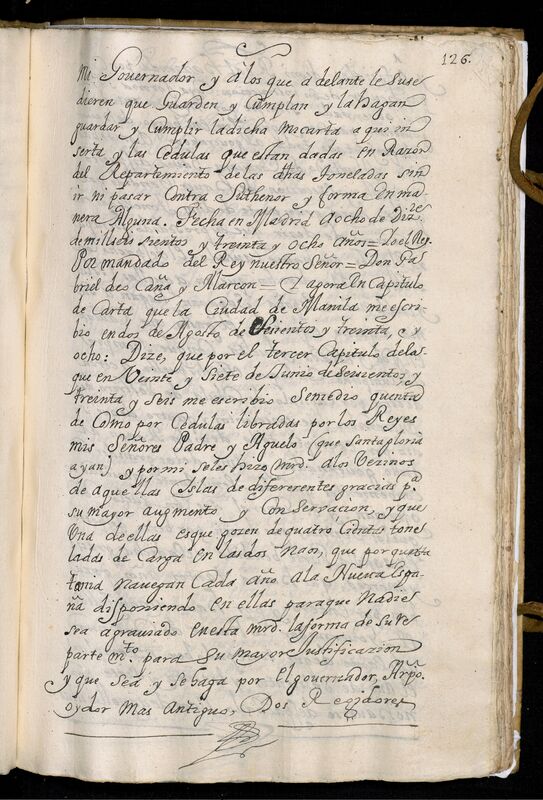 126.
Mi Governador y á los que a delante le suse
dieren que Guarden y Cumplan y la hagan
guardar y Cumplir la dicha mi carta a qui in
serta y las Cedulas que estan dadas en Razon
del Repartimiento de las dhas Toneladas sin
ir ni pasar Contra Su thenor y forma en ma
nera Alguna. Fecha en Madrid a ocho de Diz.es
de mill seis sientos y treinta y ocho años = Yo el Rey.
Por mandado del Rey nuestro Señor = Don Ga
briel de Caña y Alarcon = Y agora en Capitulo
de Carta que la Ciudad de Manila me escri
bio en dos de Agosto de Seisientos y treinta, y
ocho: Dize, que por el tercer Capitulo de las
que en Veinte y Siete de Junio de Seisientos, y
treinta y seis me escribio Se me dio quenta
de Como por Cedulas libradas por los Reyes
mis Señores Padre y Aguelo (que santa gloria
ayan) y por mi se les hizo mrd. a los Vezinos
de aquellas Islas de difererentes gracias p.a
su mayor augmento y Conserracion, y que
Una de ellas es que gozen de quatro cientas tone
ladas de Carga en las dos naos, que por quenta
mia navegan Cada año a la Nueva Espa
ña disponiendo en ellas para que Nadie
sea agraviado en esta mrd. la forma de su re
parte m.to para Su mayor Justificazion
y que sea y se haga por el governador, Arpo
oydor mas Antiguo, Dos Regidores